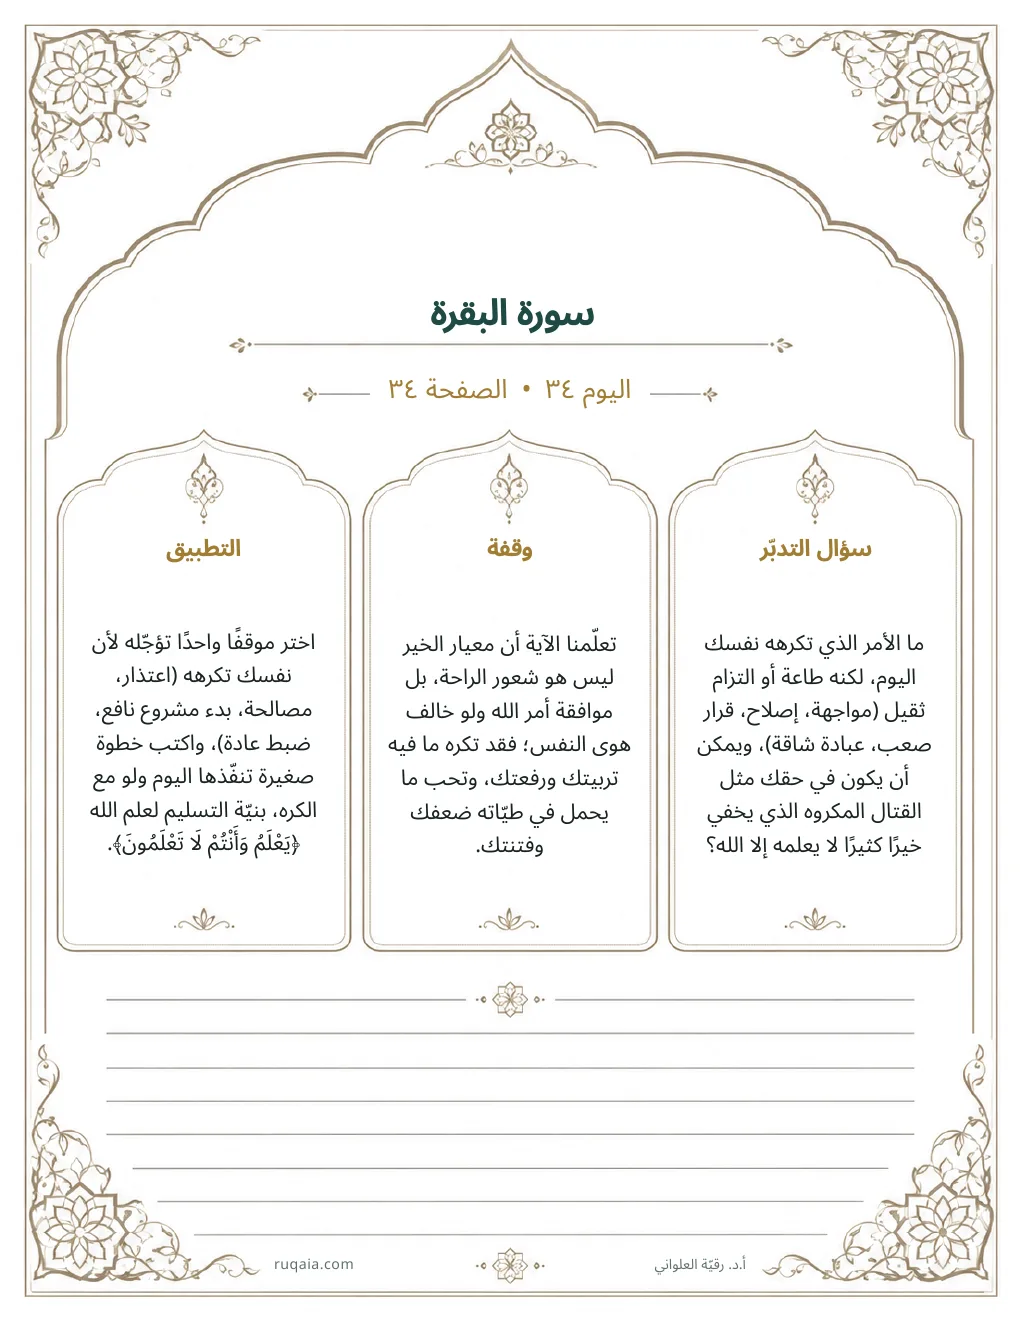 سورة البقرة
اليوم ٣٤ • الصفحة ٣٤
سؤال التدبّر
ما الأمر الذي تكرهه نفسك
اليوم، لكنه طاعة أو التزام
ثقيل (مواجهة، إصلاح، قرار
صعب، عبادة شاقة)، ويمكن
أن يكون في حقك مثل
القتال المكروه الذي يخفي
خيرًا كثيرًا لا يعلمه إلا الله؟
وقفة
تعلّمنا الآية أن معيار الخير
ليس هو شعور الراحة، بل
موافقة أمر الله ولو خالف
هوى النفس؛ فقد تكره ما فيه
تربيتك ورفعتك، وتحب ما
يحمل في طيّاته ضعفك
وفتنتك.
التطبيق
اختر موقفًا واحدًا تؤجّله لأن
نفسك تكرهه (اعتذار،
مصالحة، بدء مشروع نافع،
ضبط عادة)، واكتب خطوة
صغيرة تنفّذها اليوم ولو مع
الكره، بنيّة التسليم لعلم الله
﴿يَعْلَمُ وَأَنْتُمْ لَا تَعْلَمُونَ﴾.
أ.د. رقيّة العلواني
ruqaia.com